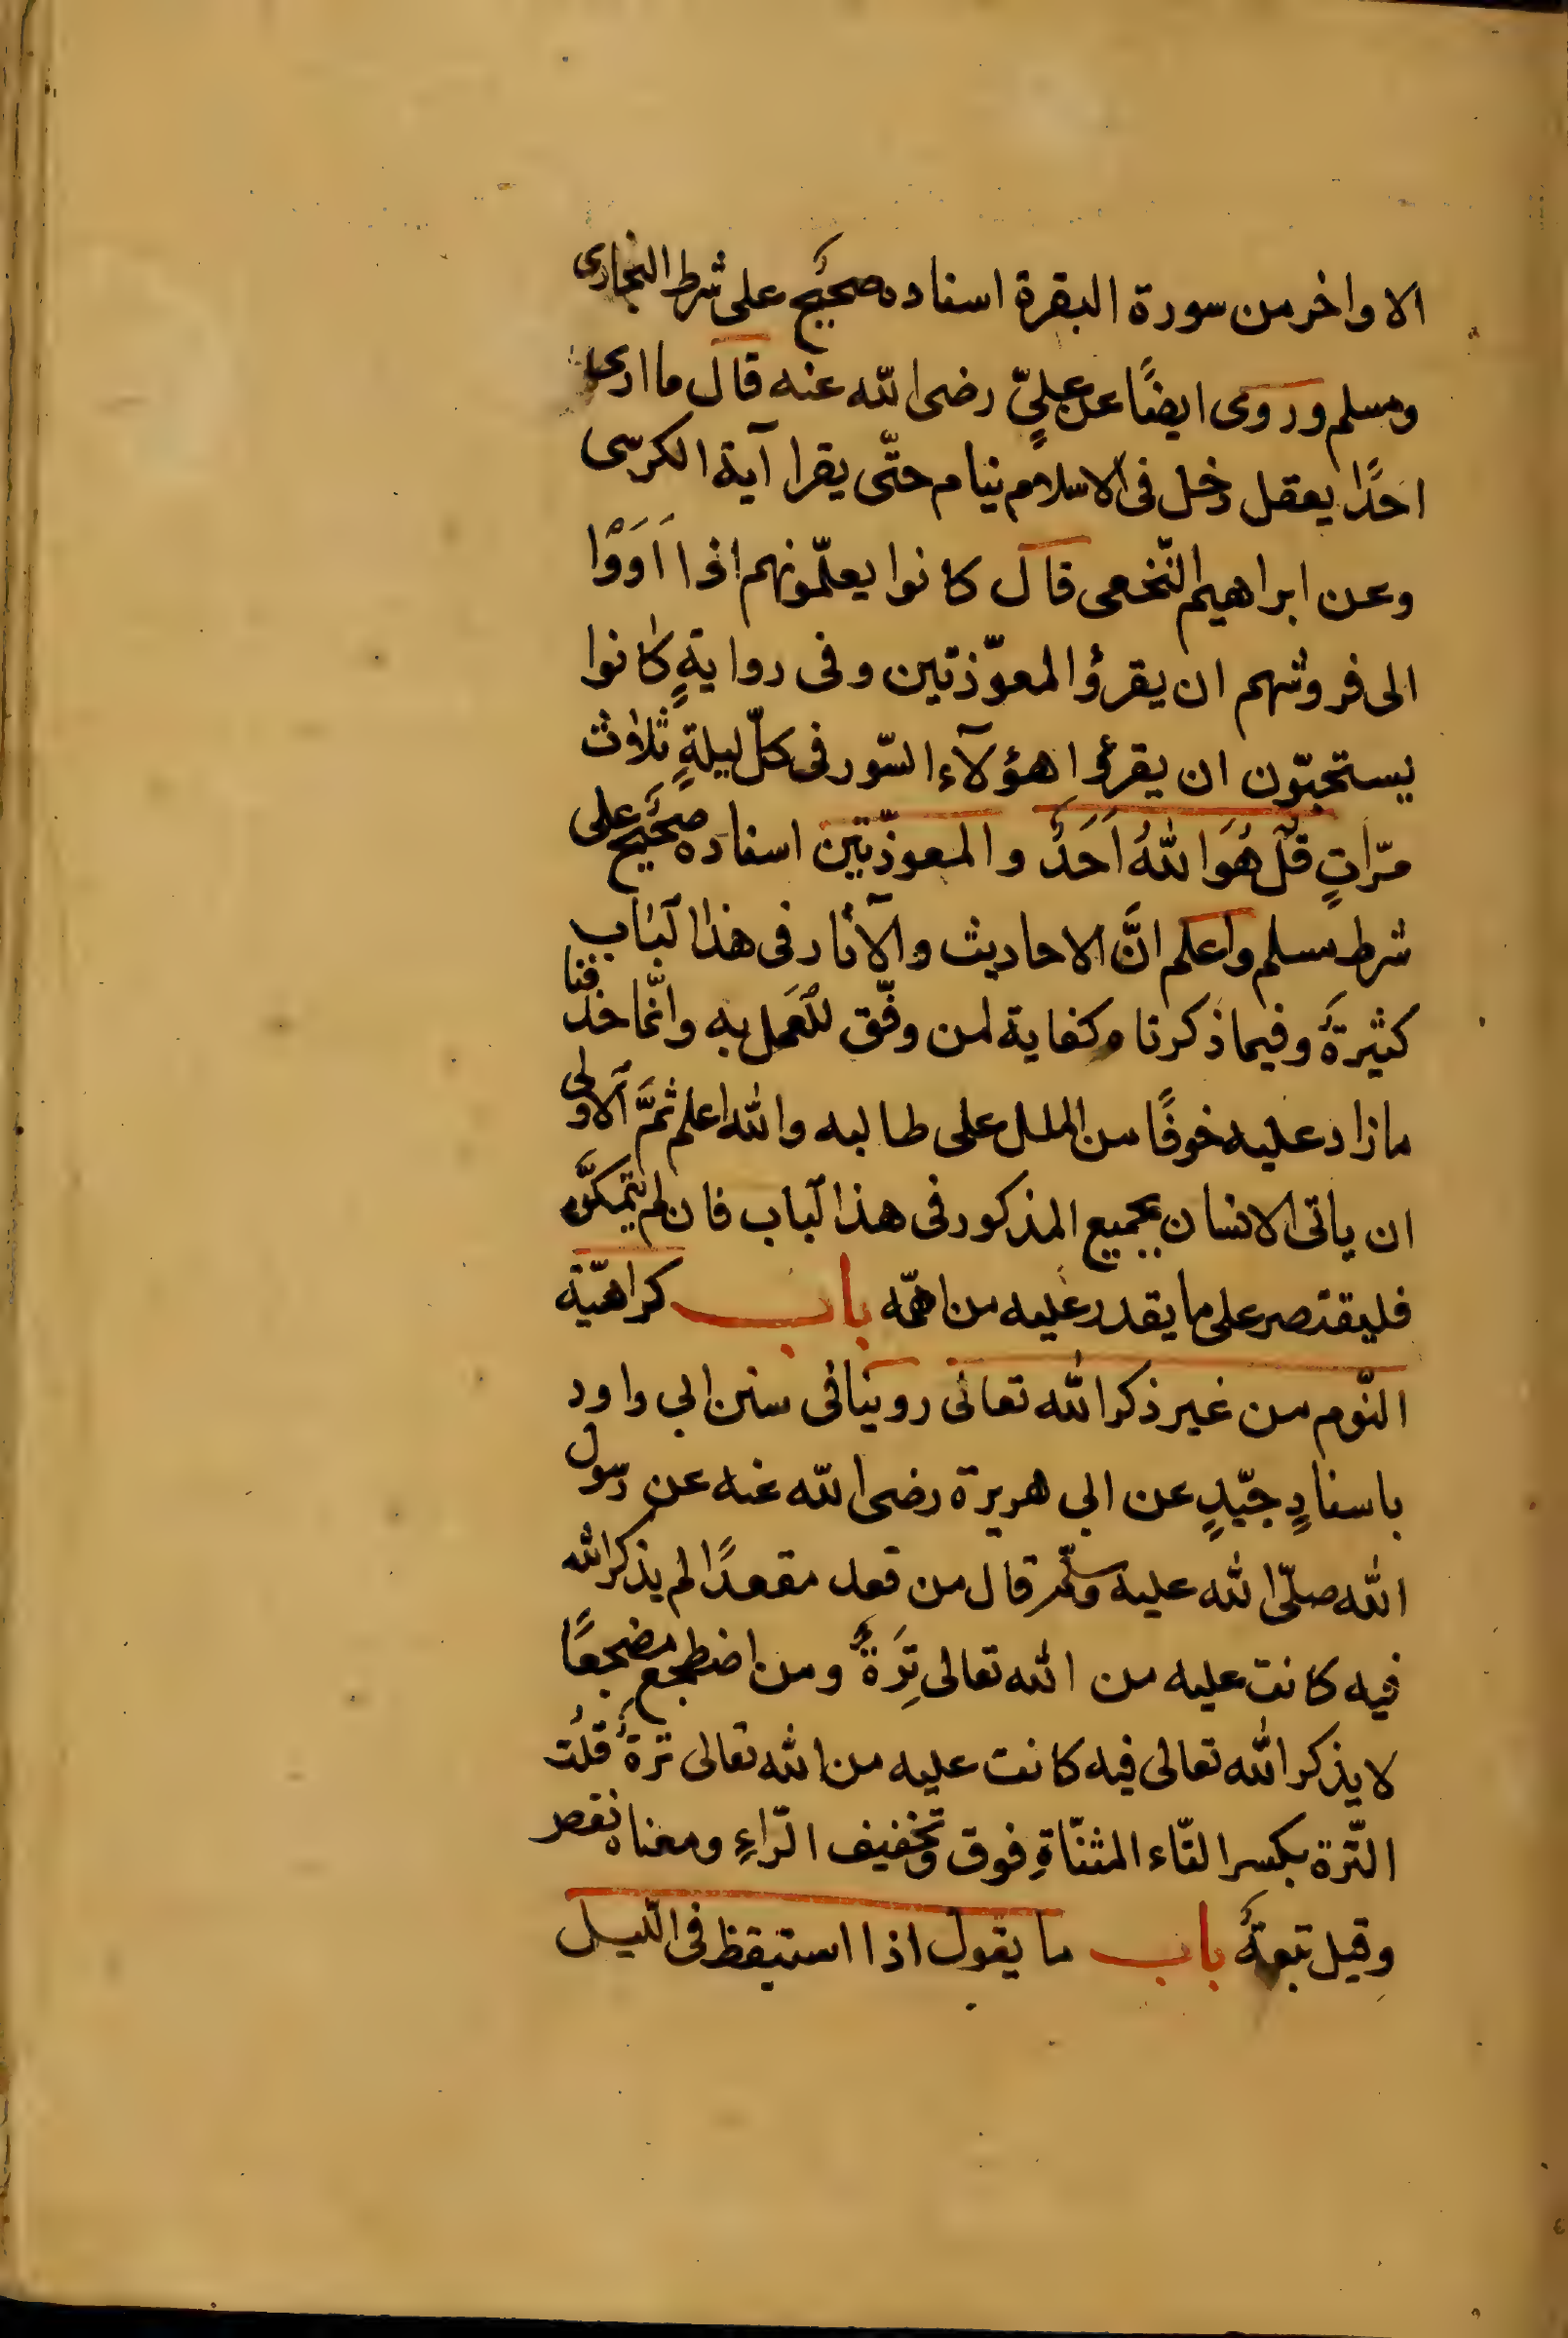 الاواخر من سورة البقرة اسناده صحيحٌ على شرط البخارى
ومسلم وروى ايضًا عن عليٍّ رضى الله عنه قال ما ارى
احدًا يعقل دخل فى الاسلام ينام حتّى يقرا آية الكرسى
وعن ابراهيم النّخعى قال كانوا يعلّمونهم اذا اَوَوْا
الى فروشهم ان يقرؤا المعوّذتين وفى روايةٍ كانوا
يستحبّون ان يقرؤا هؤلآء السّور فى كلّ ليلةٍ ثلاث
مرّاتٍ قل هُوَ اللهُ اَحَدٌ والمعوذّتين اسناده صحيحٌ على
شرط مسلم واعلم انَّ الاحاديث والآثار فى هذا الباب
كثيرةٌ وفيما ذكرنا كفاية لمن وفّق للعمل به وانّما حذفنا
مازاد عليه خوفًا من الملل على طالبه والله اعلم ثمَّ الاولى
ان ياتى الانسان بجميع المذكور فى هذا الباب فان لم يتمكّن
فليقتصر على ما يقدر عليه من اهمّه باب كراهيّة
النّوم من غير ذكر الله تعالى روينا فى سنن ابي داود
باسنادٍ جيّدٍ عن ابي هريرة رضى الله عنه عن رسول
الله صلّى الله عليه وسلّم قال من قعد مقعدًا لم يذكر الله
فيه كانت عليه من الله تعالى تِرَةٌ ومن اضطجع مضجعًا
لا يذكر الله تعالى فيه كانت عليه من الله تعالى ترةٌ قلت
التّرة بكسر التّاء المثنّاةِ فوق وتخفيف الرّاءِ ومعناه نقص
وقيل تبعةٌ باب ما يقول اذا استيقظ فى اللّيل